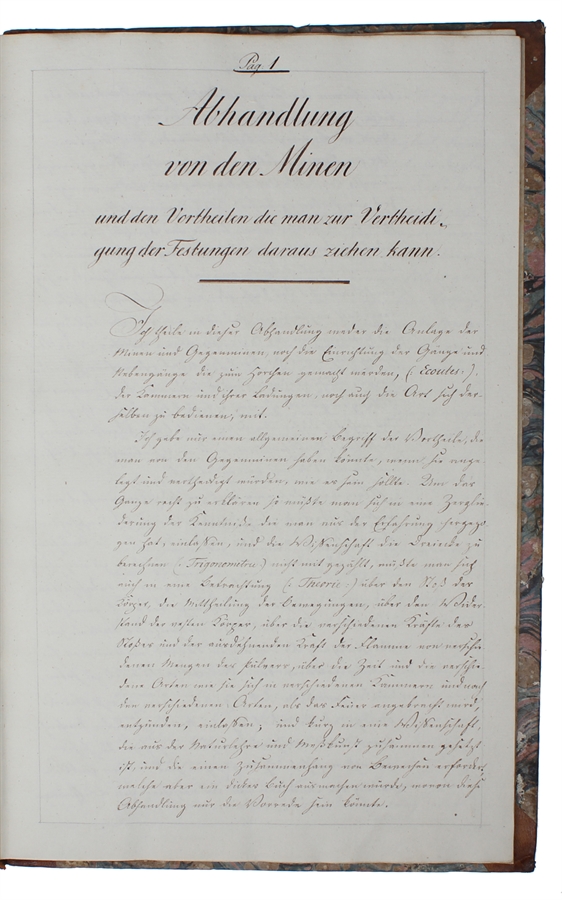 Pag. 1
Abhandlung
von den Minen
und den Vortheilen die man zur Vertheidi-
gung der Festungen daraus ziehen kann.
Ich theile in dieser Abhandlung weder die Anlage der
Minen und Gegenminen, noch die Einrichtung der Gänge und
Nebengänge die zum Horchen gemacht werden, (: Ecoutes :)
der Kammern und ihrer Ladungen, noch auch die Art sich der-
selben zu bedienen, mit.
Ich gebe nur einen allgemeinen Begriff der Vortheile, die
man von den Gegenminen haben könnte, wenn sie ange
legt und vertheidigt würden, wie es sein sollte. Um das
Ganze recht zu erklären so müßte man sich in eine Zerglie
derung der Kenntniße die man aus der Erfahrung hergezo
gen hat, einlassen, und die Wissenschaft die Dreiecke zu
berechnen (: Trigonometrie :) nicht mit gezählt, müßte man sich
auch in eine Betrachtung (: Theorie :) über den Stoß der
Körper, die Mittheilung der Bewegungen, über den Wider
stand der festen Körper, über die verschiedenen Kräfte der
Stoßes und der ausdehnenden Kraft der Flamme von verschie
denen Mengen des Pulvers, über die Zeit und die verschie
dene Arten wie sie sich in verschiedenen Kammern und nach
den verschiedenen Arten, als das Feuer angebracht wird,
entzünden, einlassen; und kurz in eine Wissenschaft,
die aus der Naturlehre und Meßkunst zusammen gesetzt
ist, und die einen Zusammenhang von erfordert,
welche aber ein dickes Buch ausmachen würde, wovon diese
Abhandlung nur die Vorrede sein könnte.